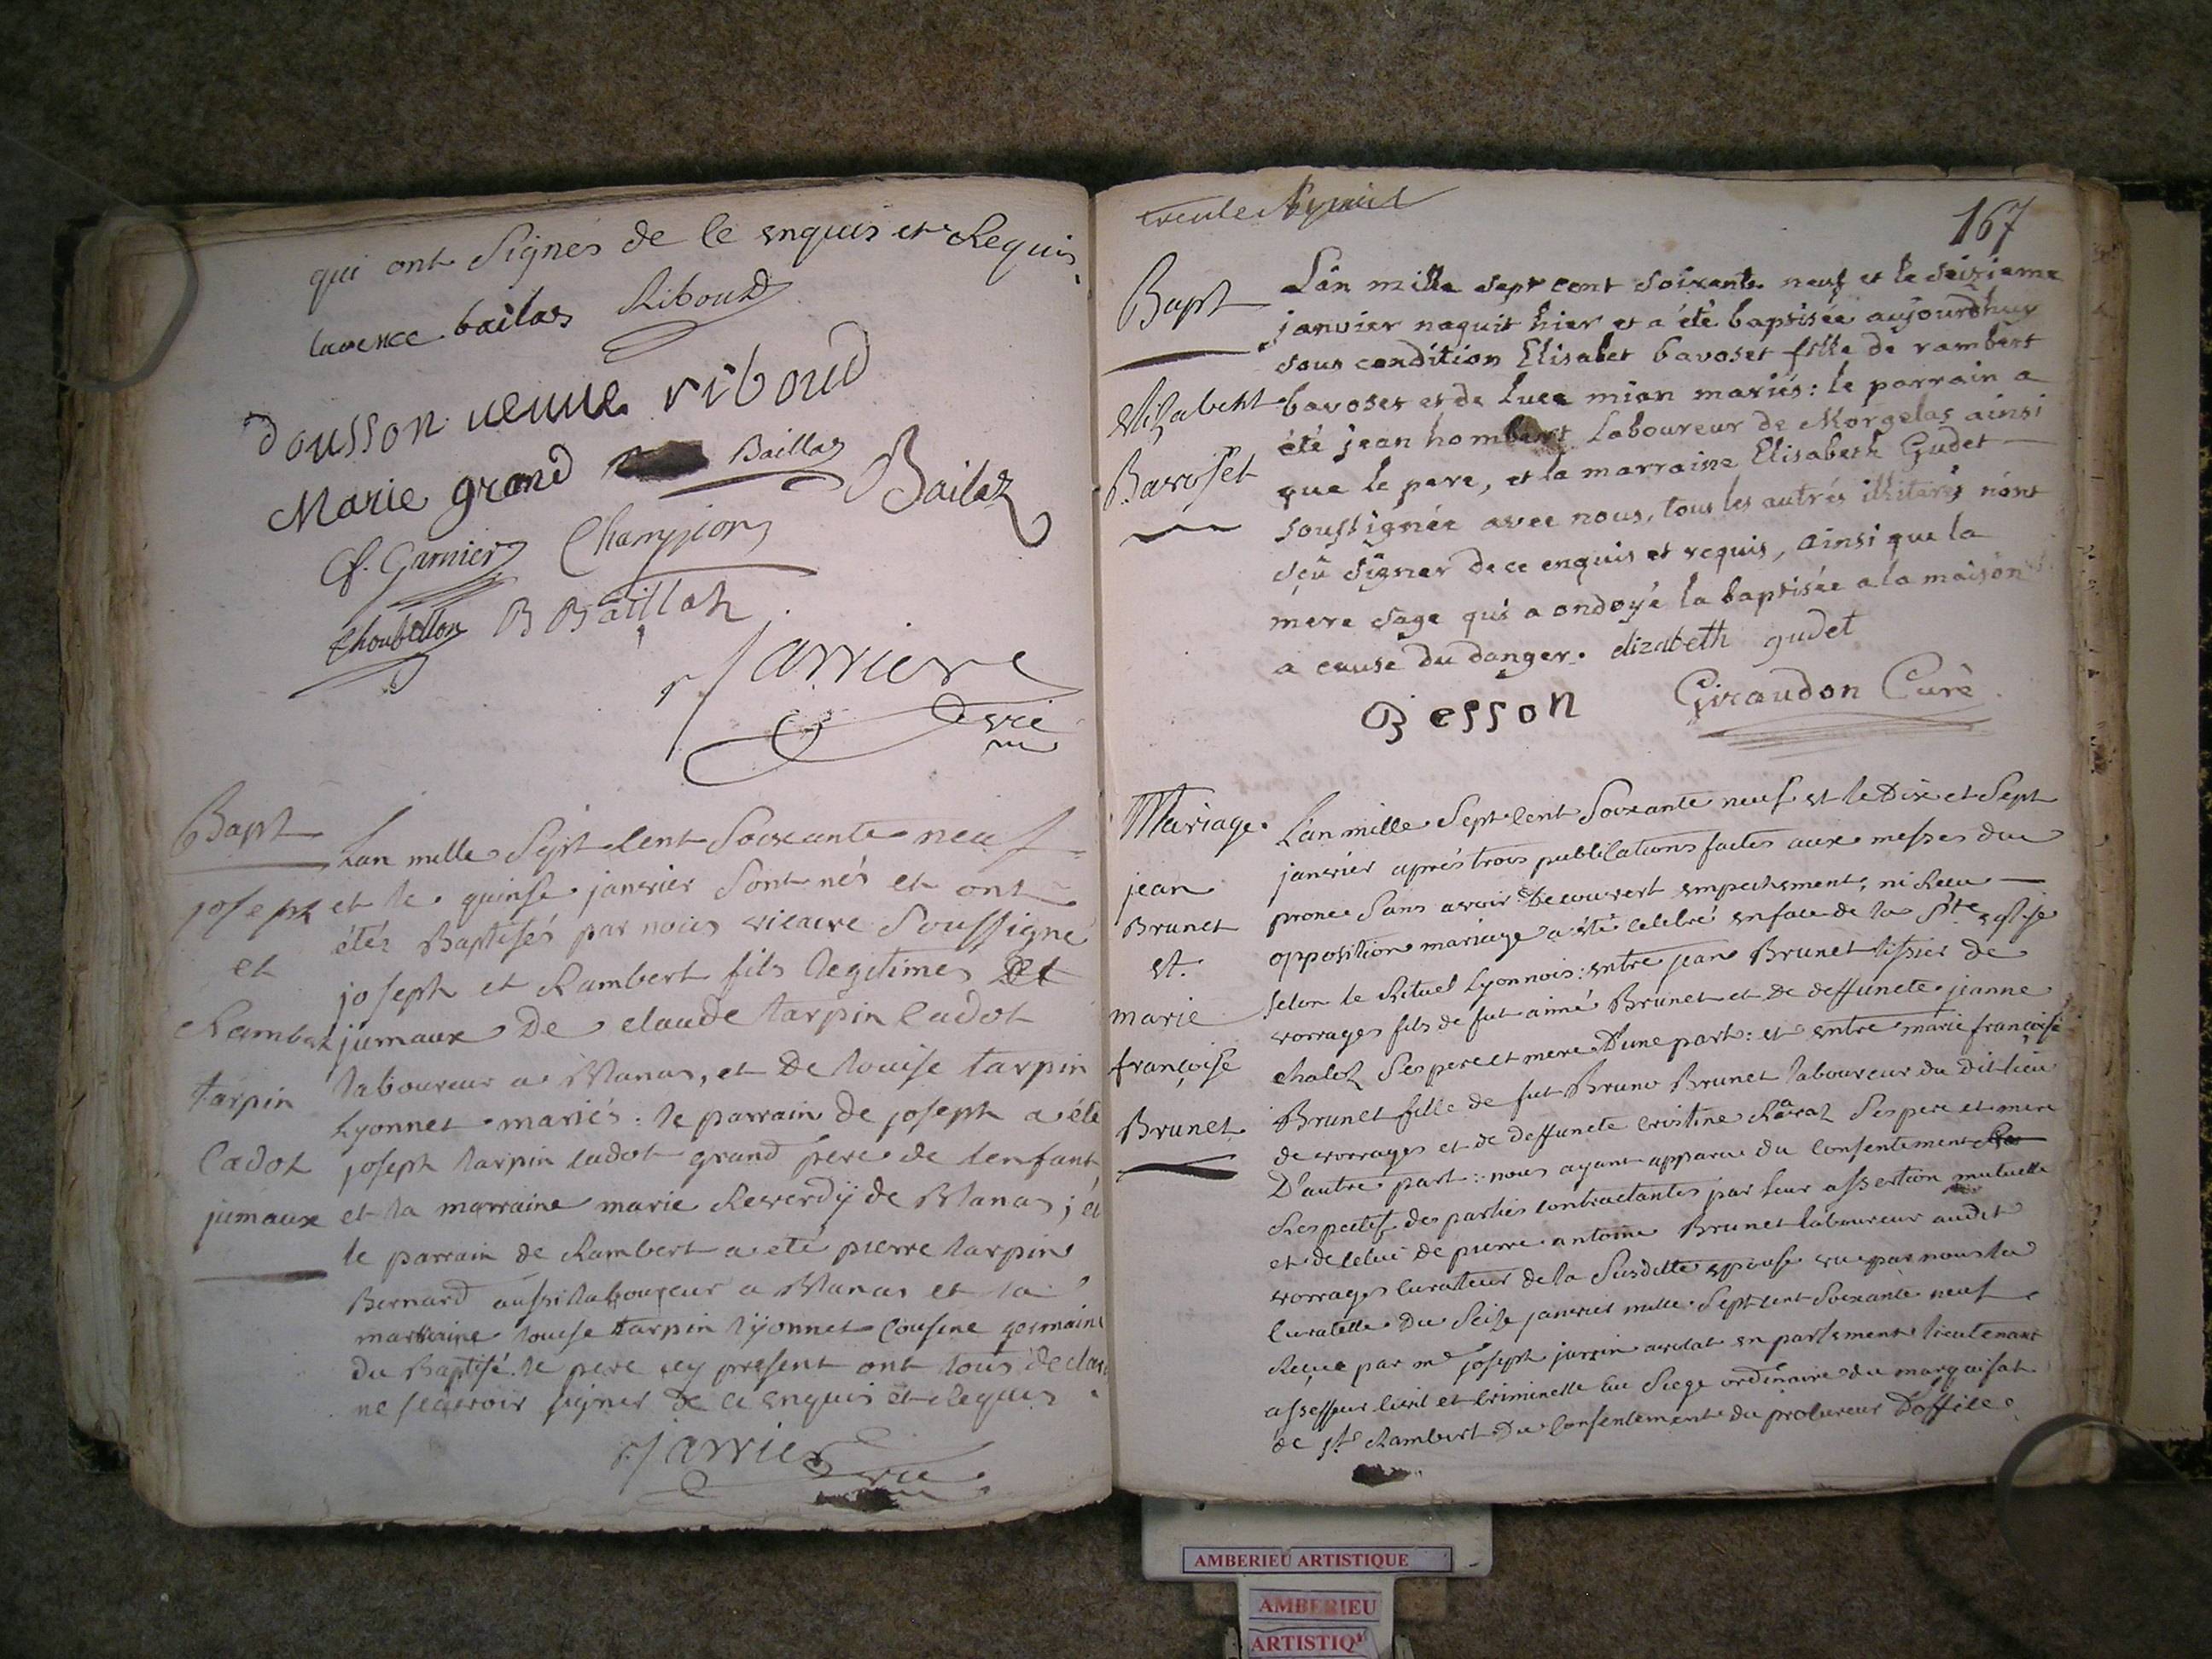 qui ont Signés de ce enquis et Requis
laurence bailas Riboud
dousson veuve riboud
Marie grand Baillas
Bailaz
Cf. Garnier Champion
Choubellon B Baillat
Jarrier
vre
Bapt
joseph
et
Rambert
tarpin
Cadot
jumaux
Lan mille Sept Cent Soixante neuf
et le quinse janvier Sont nés et ont
étéz Baptisés par nous vicaire Soussigné
joseph et Rambert fils legitimes Et
jumaux De claude tarpin Cadot
laboureur a Blanas, et De louise tarpin
Lyonnet mariés : le parrain de joseph a été
joseph tarpin cadot grand père de lenfant
et la marraine marie Reverdÿ de Blanas ; et
le parrain de Rambert a eté pierre tarpin
Bernard aussi laboureur a Blanas et la
marraine louise tarpin lÿonnet Cousine germaine
du Baptisé. le pere icy present ont tous déclaré
ne scavoir signer de ce enquis et requis
Jarrier
vre
trente
167
Bapt
Elizabeth
Bavoset
Lán mille sept cent soixante neuf et le seizieme
janvier naquit hier et a été baptisée aujourdhuy
sous condition Elisabet bavoset fille de rambert
bavoset et de Luce mian mariés : le parrain a
été jean hombert Laboureur de Morgelas ainsi
que le pere, et la marraine Elisabeth Gudet
soussignée avec nous, tous les autrés illiterés nónt
sçû signer de ce enquis et requis, ainsi que la
mere sage qui a ondoyé la baptisée a la maison
a cause du danger. elizabeth gudet
Besson Giraudon Curé
Mariage
jean
Brunet
et
marie
françoise
Brunet
L'an mille Sept Cent Soixante neuf et le Dix et Sept
janvier aprés trois publications faites aux messes du
prone Sans avoir découvert empechement, ni Recu
opposition mariage a été celebré en face de la Ste eglise
selon le Rituel Lyonnois : entre jean Brunet tissier de
vorrages fils de fut aimé Brunet et De deffuncte jeanne
chalet Ses pere et mere D'une part : et entre marie françoise
Brunet fille de fut Bruno Brunet laboureur du dit lieu
de vorrages et de deffuncte Cristine Ravat Ses pere et mere
D'autre part : nous ayant apparu du Consentement
Respectif des parties contractantes par leur assertion mutuelle
et de Celui de pierre antoine Brunet laboureur audit
vorrages Curateur de la Susditte epouse vu par nous la
Curatelle Du Seize janvier mille Sept Cent Soixante neuf
Recue par me joseph jurrin avocat en parlement lieutenant
assesseur Civil et Criminelle au Siege ordinaire du marquisat
de St Rambert Du Consentement du procureur D'office.
AMBERIEU ARTISTIQUE
AMBERIEU
ARTISTIQ